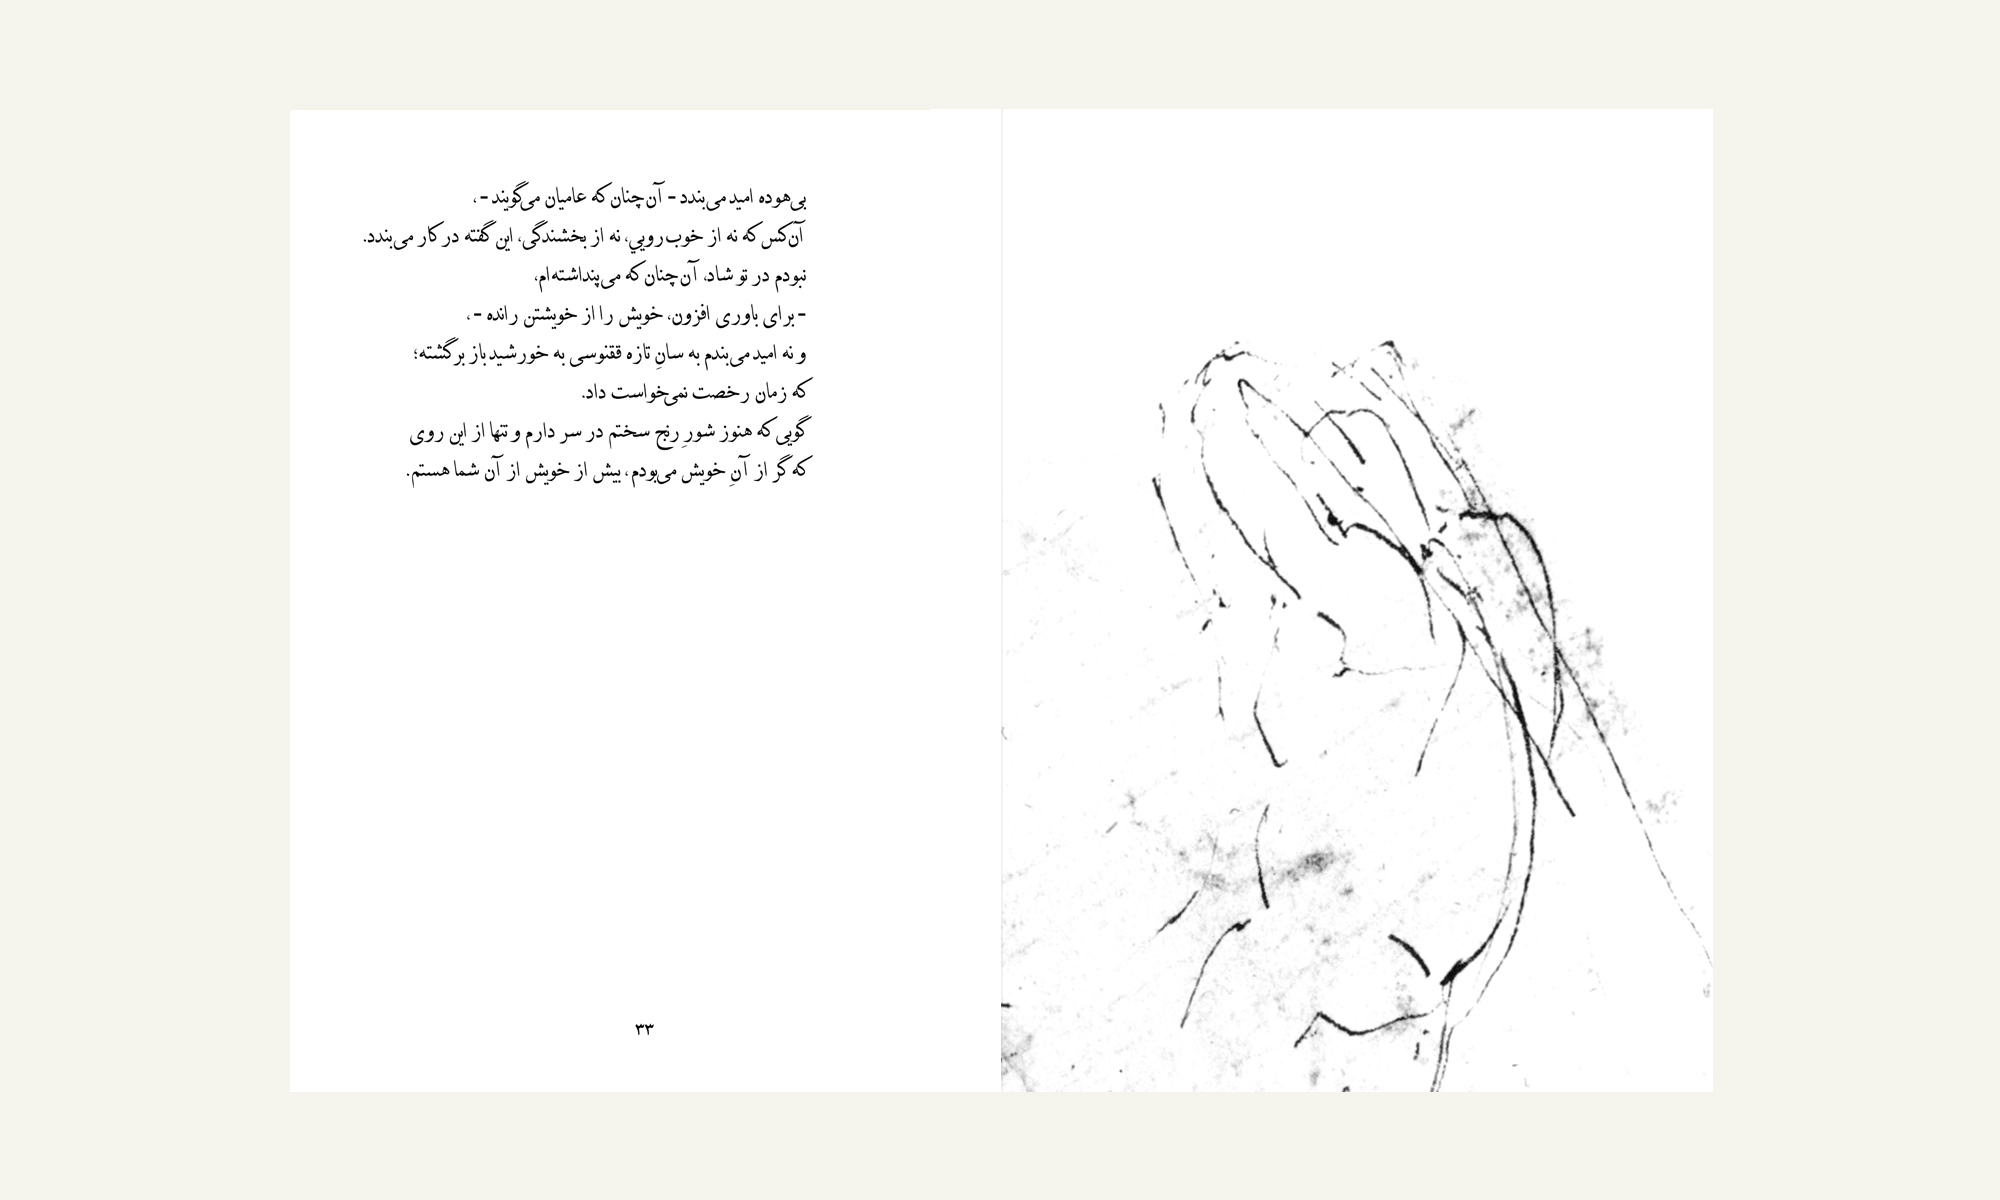 بی‌هوده امید می‌بندد - آن‌چنان‌که عامیان می‌گویند -،
آن‌کس‌که نه از خوب‌رویی، نه از بخشندگی، این‌گفته در کار می‌بندد.
نبودم در تو شاد، آن‌چنان‌که می‌پنداشته‌ام،
- برای باوری افزون، خویش را از خویشتن رانده -،
و نه امید می‌بندم به سانِ تازه ققنوسی به خورشید باز برگشته؛
که زمان رخصت نمی‌خواست داد.
گویی‌که هنوز شورِ رنجِ سختم در سر دارم و تنها از این روی
که گر از آنِ خویش می‌بودم، بیش از خویش از آن شما هستم.
۳۳